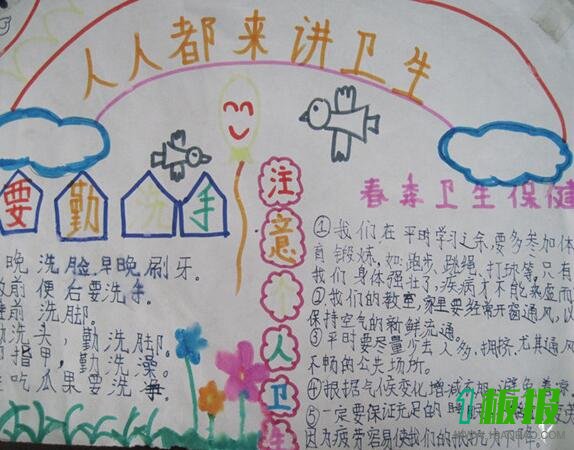 人人都来讲卫生
要勤洗手
晚洗脸,早晚刷牙。
前便后要洗手。
前洗脚。
勤洗头,勤洗脚。
指甲,勤洗澡。
吃瓜果要洗
注意个人卫生
春季卫生保健
①我们在平时学习之余,要多参加体
育锻炼,如:跑步、跳绳、打球等,只有
我们身体强壮了,疾病才不能乘虚而
②我们的教室,家里要经常开窗通风,以
保持空气的新鲜流通。
③平时要尽量少去人多,拥挤,尤其通风
不畅的公共场所。
④根据气候变化,增减衣服,避免着凉
⑤一定要保证充足的睡眠
因为疲劳容易使我们的抵抗力下降。
1板报